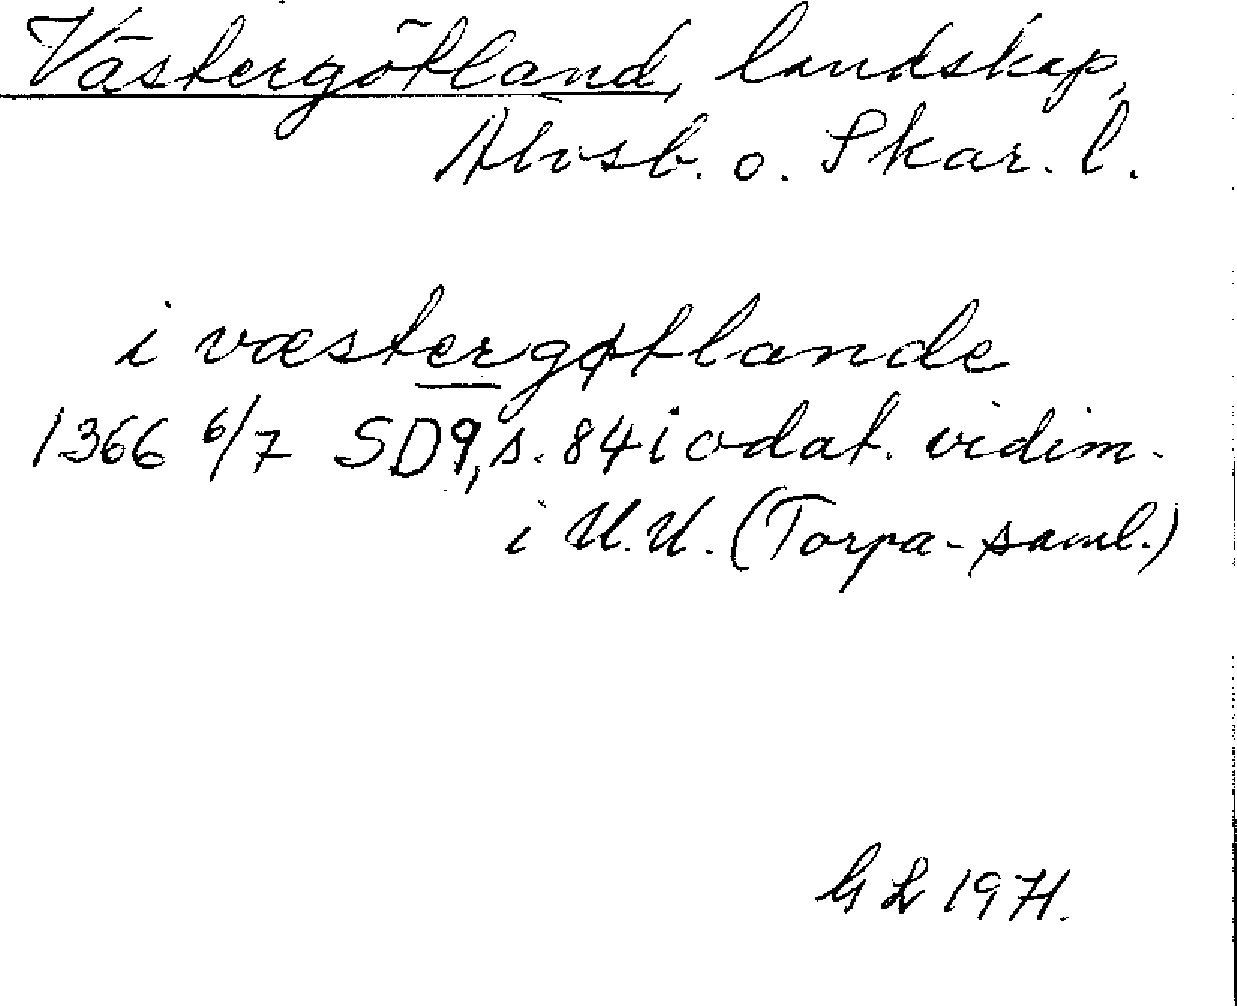 Västergötland, landskap,
Älvsb. o. Skar. l.
i væstergøtlande
1366 6/7 SD9, s. 84 i odat. vidim.
i U.U. (Torpa-saml.)
GL 1971.